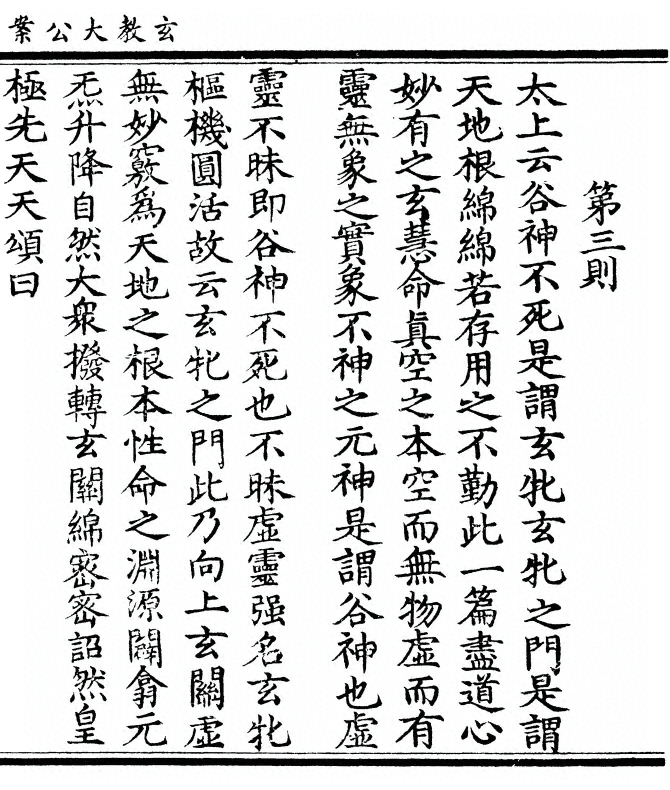 玄教大公案
第三則
太上云谷神不死是謂玄牝玄牝之門是謂
天地根綿綿若存用之不勤此一篇盡道心
妙有之玄慧命眞空之本空而無物虛而有
靈無象之實象不神之元神是謂谷神也虛
靈不昧即谷神不死也不昧虛靈强名玄牝
樞機圓活故云玄牝之門此乃向上玄關虛
無妙竅爲天地之根本性命之淵源闢翕元
炁升降自然大衆撥轉玄關綿密密詔然皇
極先天天頌曰